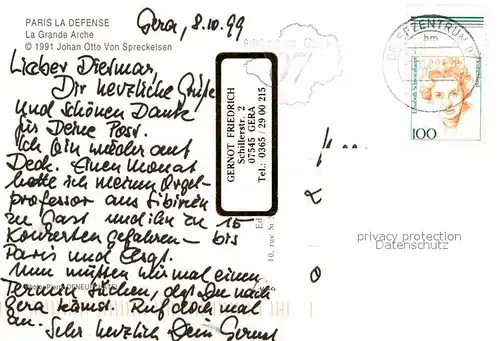 PARIS LA DEFENSE
La Grande Arche
© 1991 Johan Otto Von Spreckelsen
Gera, 8.10.99
Lieber Dietmar,
Dir herzliche Grüße
und schönen Dank
für Deine Post.
Ich bin wieder auf
Deck. Einen Monat
hatte ich meinen Orgel-
professor aus Sibirien
zu Gast und ihn zu 15
Konzerten gefahren - bis
Paris und
Nun müssten wir mal einen
Termin suchen, daß Du nach
Gera kämst. Ruf doch mal
an.
Sehr herzlich Dein Gernot
GERNOT FRIEDRICH
Schillerstr. 2
07545 GERA
Tel.: 0365 / 29 00 215
10, rue
BRIEFZENTRUM 0
bm
Elisabeth Schwarzhaupt
Deutschland
100
privacy protection
Datenschutz